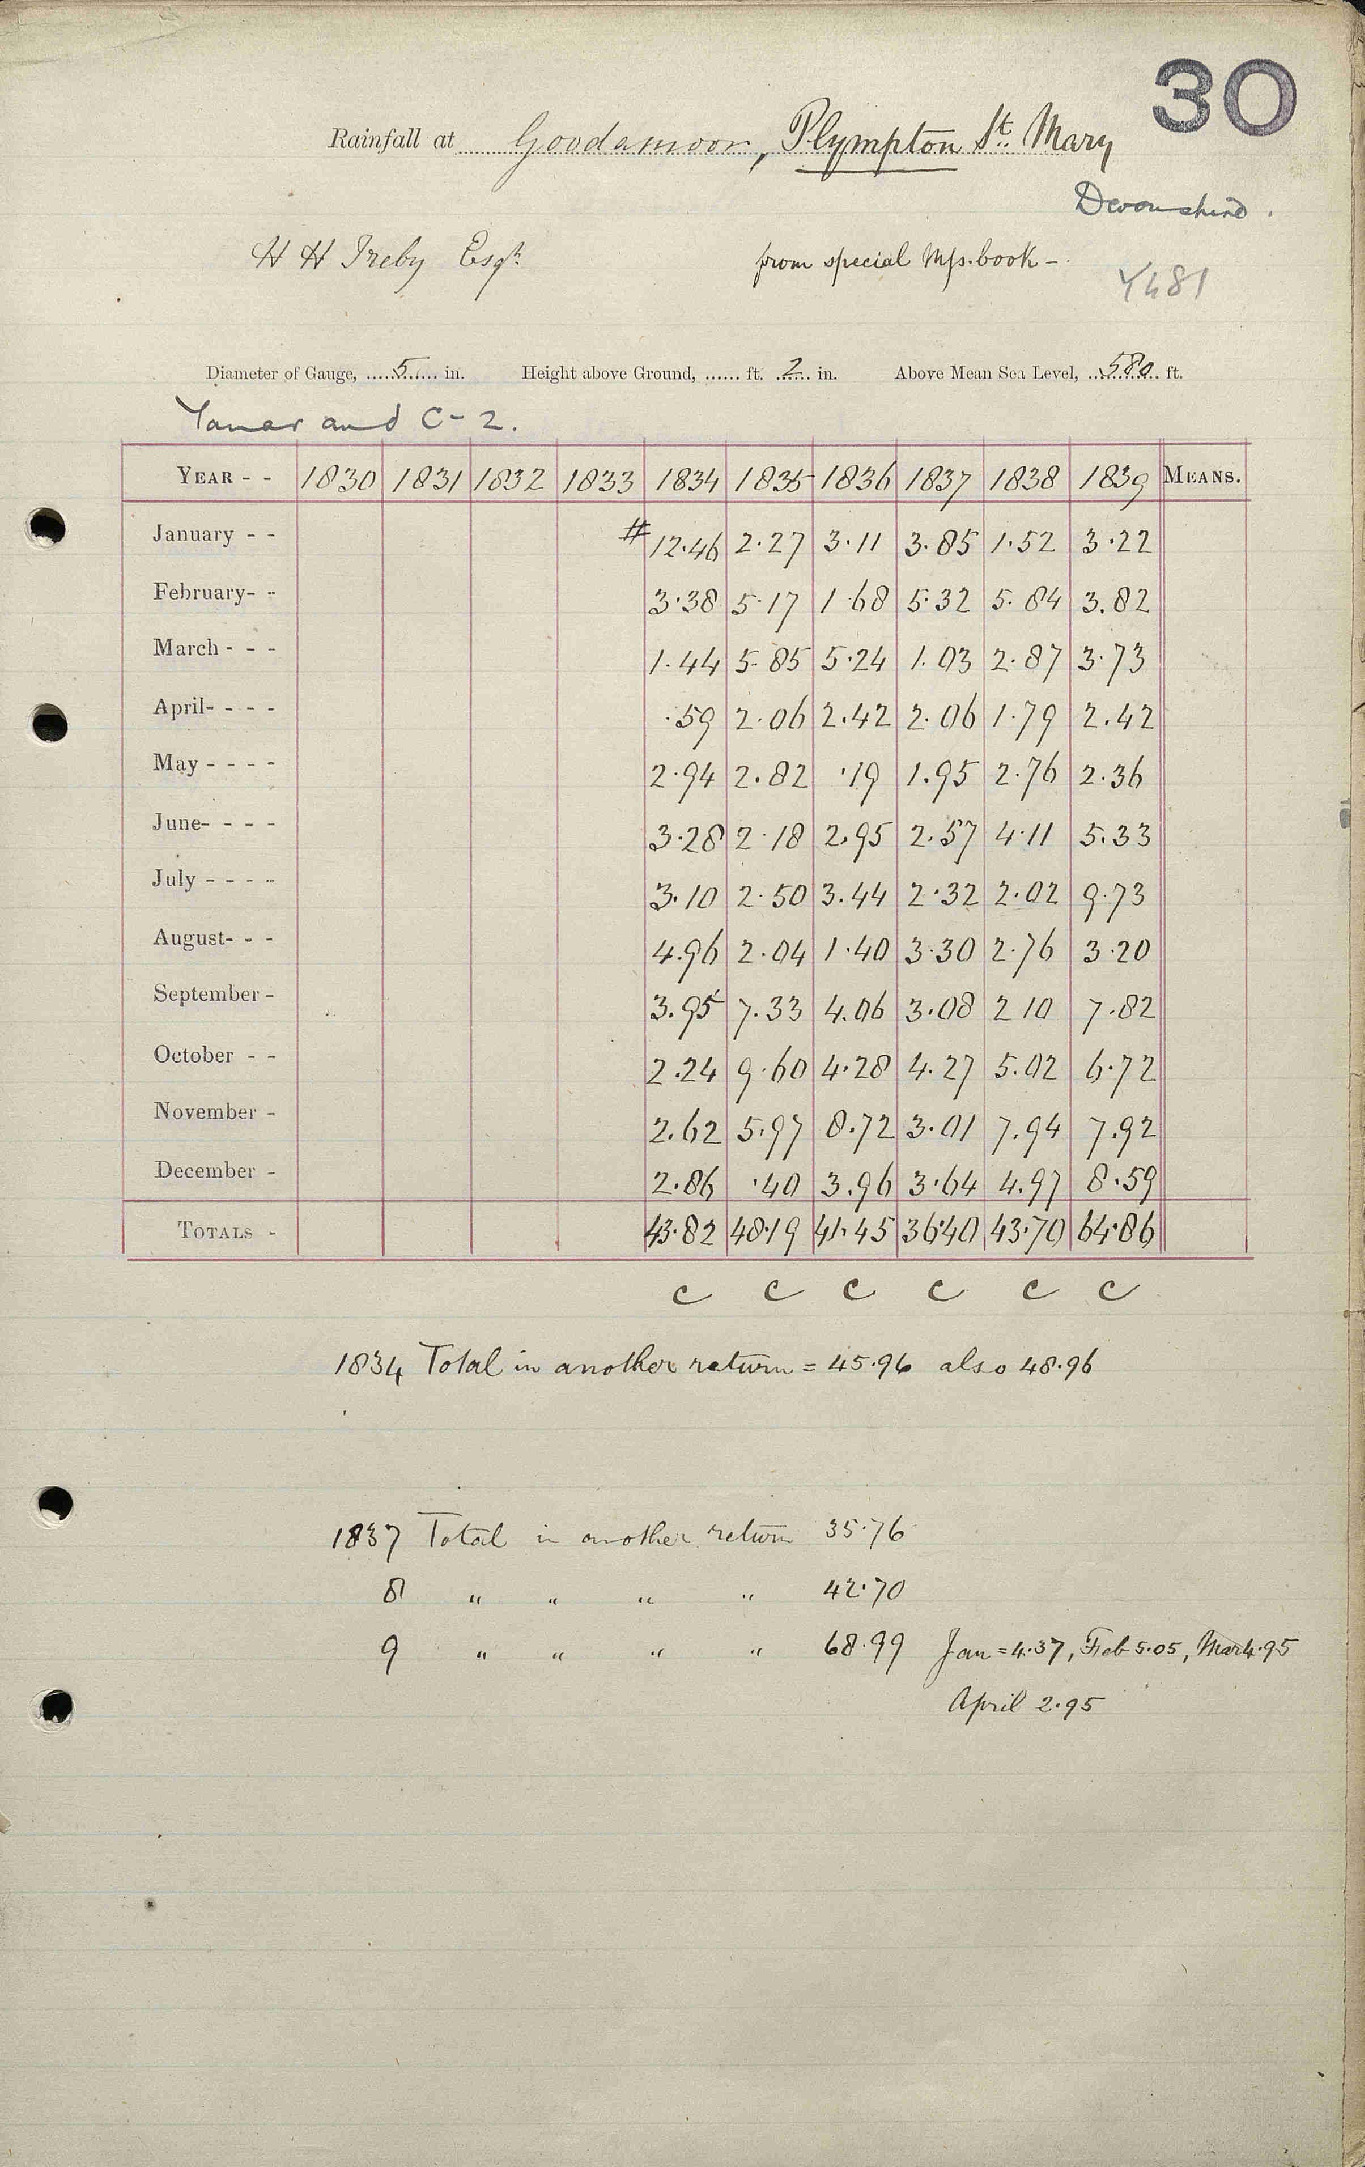 30
Rainfall at Goodamoor, Plympton St. Mary
Devonshire.
H H Treby Esqr. from special Mss. book -
481
Diameter of Gauge, ..... 5 ..... in. Height above Ground, ...... ft. 2 in. Above Mean Sea Level, 580 ft.
and C - 2.
YEAR - - 1830 1831 1832 1833 1834 1835 1836 1837 1838 1839 MEANS.
January - - # 12.46 2.27 3.11 3.85 1.52 3.22
February- - 3.38 5.17 1.68 5.32 5.84 3.82
March - - - 1.44 5.85 5.24 1.03 2.87 3.73
April- - - - .59 2.06 2.42 2.06 1.79 2.42
May - - - - 2.94 2.82 .19 1.95 2.76 2.36
June- - - - 3.28 2.18 2.95 2.57 4.11 5.33
July - - - - 3.10 2.50 3.44 2.32 2.02 9.73
August- - - 4.96 2.04 1.40 3.30 2.76 3.20
September - 3.95 7.33 4.06 3.08 2 10 7.82
October - - 2.24 9.60 4.28 4.27 5.02 6.72
November - 2.62 5.97 8.72 3.01 7.94 7.92
December - 2.86 .40 3.96 3.64 4.97 8.59
TOTALS - 43.82 48.19 41.45 36.40 43.70 64.86
c c c c c c
1834 Total in another return = 45.96 also 48.96
1837 Total in another return 35.76
8 " " " " 42.70
9 " " " " 68.99 Jan = 4.37, Feb 5.05, Mar 4.95
April 2.95